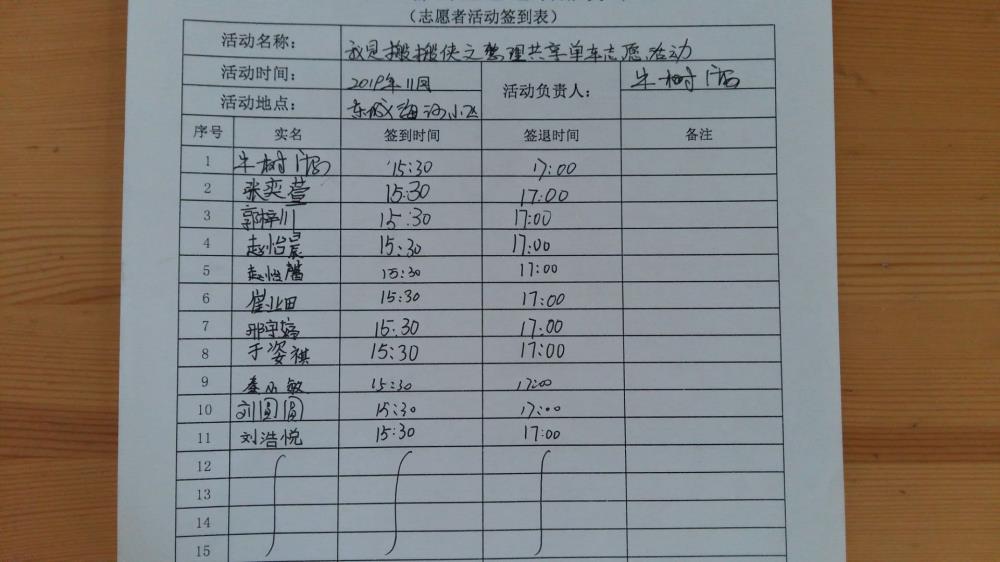 （志愿者活动签到表）
活动名称： 我是搬搬侠之整理共享单车志愿活动
活动时间： 2019年11月 活动负责人： 牛树
活动地点： 东城 海河小区
序号 实名 签到时间 签退时间 备注
1 牛树 15:30 17:00
2 张奕萱 15:30 17:00
3 郭梓川 15:30 17:00
4 赵怡晨 15:30 17:00
5 赵怡馨 15:30 17:00
6 崔业田 15:30 17:00
7 邢守婷 15:30 17:00
8 于姿祺 15:30 17:00
9 敏 15:30 17:00
10 刘圆圆 15:30 17:00
11 刘浩悦 15:30 17:00
12
13
14
15